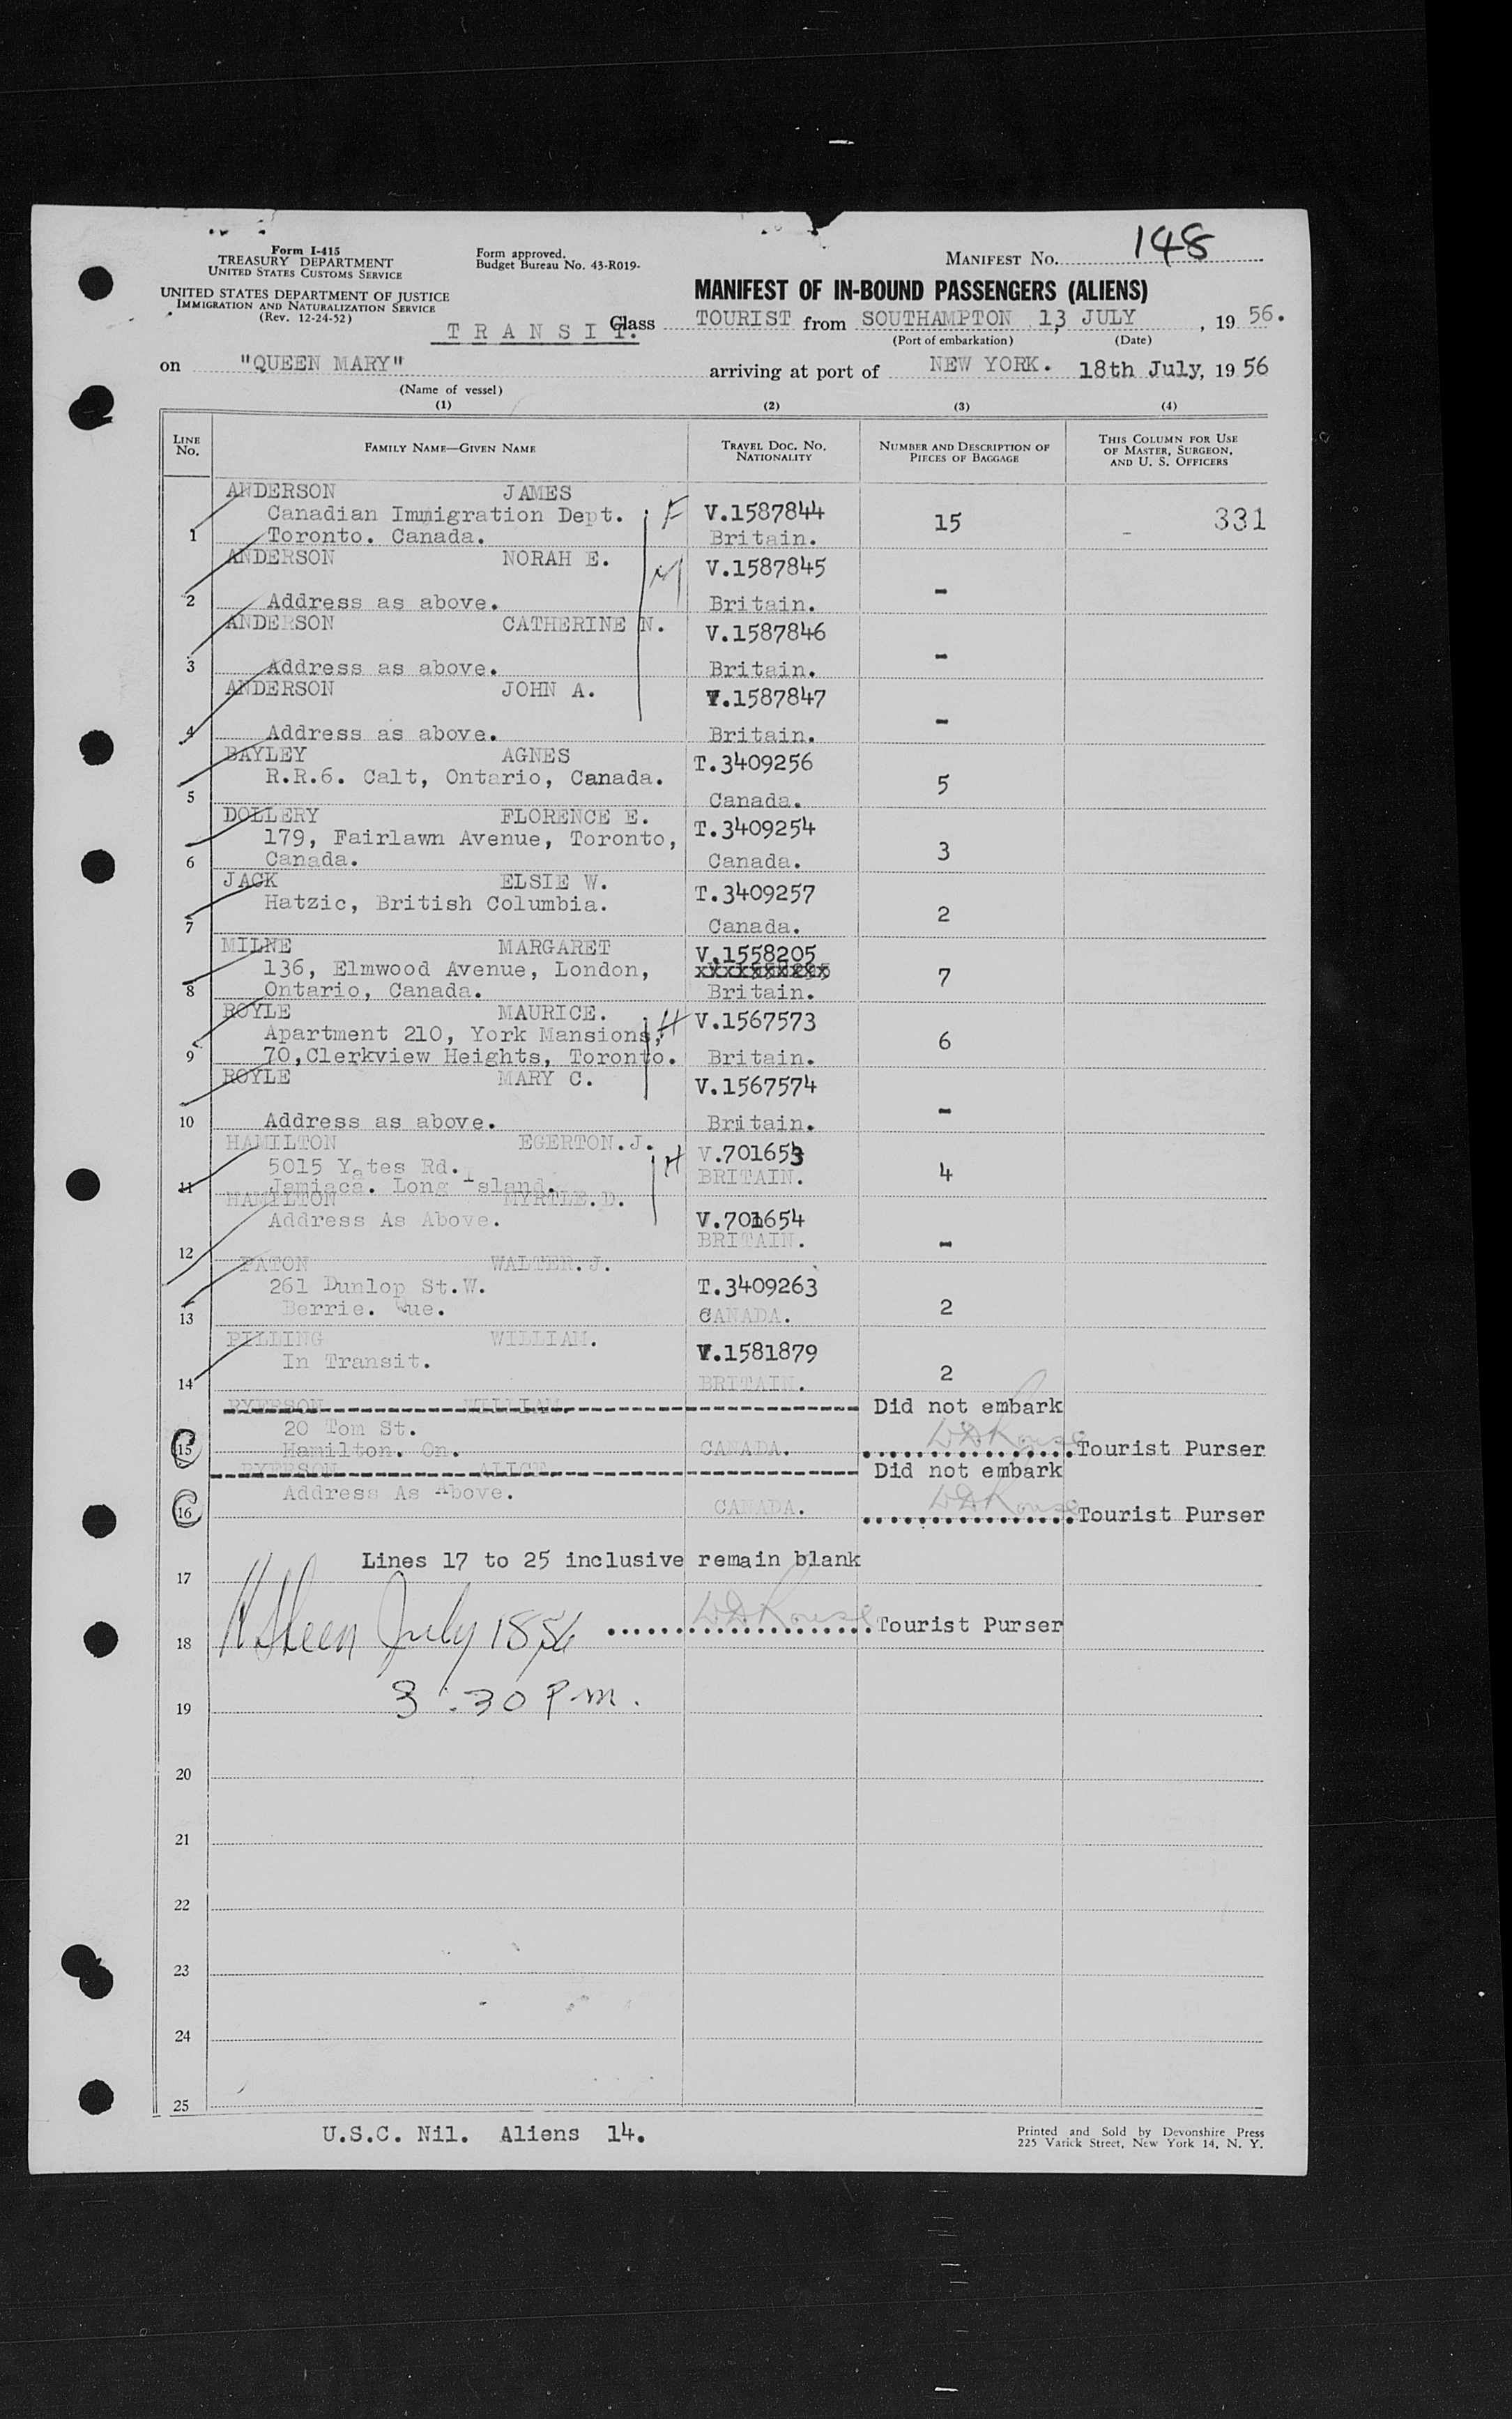 148
Form I-415
TREASURY DEPARTMENT
UNITED STATES CUSTOMS SERVICE
Form approved.
Budget Bureau No. 43-R019-
MANIFEST No.
UNITED STATES DEPARTMENT OF JUSTICE
IMMIGRATION AND NATURALIZATION SERVICE
(Rev. 12-24-52)
MANIFEST OF IN-BOUND PASSENGERS (ALIENS)
TRANSIT. Class TOURIST from SOUTHAMPTON 13 JULY, 19 56.
(Port of embarkation) (Date)
on "QUEEN MARY" arriving at port of NEW YORK. 18th July, 19 56
(Name of vessel)
(1) (2) (3) (4)
LINE No. FAMILY NAME—GIVEN NAME TRAVEL DOC. NO. NATIONALITY NUMBER AND DESCRIPTION OF PIECES OF BAGGAGE THIS COLUMN FOR USE OF MASTER, SURGEON, AND U. S. OFFICERS
ANDERSON JAMES
Canadian Immigration Dept. F V.1587844 15 331
1 Toronto. Canada. Britain.
ANDERSON NORAH E. V.1587845
2 Address as above. Britain. -
ANDERSON CATHERINE N. V.1587846
3 Address as above. Britain. -
ANDERSON JOHN A. V.1587847
4 Address as above. Britain. -
BAYLEY AGNES T.3409256
R.R.6. Calt, Ontario, Canada. 5
5 Canada.
DOLLERY FLORENCE E. T.3409254
179, Fairlawn Avenue, Toronto, 3
6 Canada. Canada.
JACK ELSIE W. T.3409257
Hatzic, British Columbia. 2
7 Canada.
MILNE MARGARET V.1558205
136, Elmwood Avenue, London, 7
8 Ontario, Canada. Britain.
ROYLE MAURICE. V.1567573
Apartment 210, York Mansions, H 6
9 70,Clerkview Heights, Toronto. Britain.
ROYLE MARY C. V.1567574
10 Address as above. Britain. -
HAMILTON EGERTON.J. V.701653
5015 Yates Rd. H BRITAIN. 4
11 Jamiaca. Long Island.
HAMILTON MYRTLE.D.
Address As Above. V.701654
12 BRITAIN. -
PATON WALTER.J.
261 Dunlop St.W. T.3409263
13 Berrie. Que. CANADA. 2
PILLING WILLIAM.
In Transit. V.1581879
14 BRITAIN. 2
RYERSON WILLIAM. Did not embark
20 Tom St.
15 Hamilton. On. CANADA. Tourist Purser
RYERSON ALICE Did not embark
Address As Above.
16 CANADA. Tourist Purser
Lines 17 to 25 inclusive remain blank
17
July 18 56 Tourist Purser
18
3.30 P.m.
19
20
21
22
23
24
25
U.S.C. Nil. Aliens 14.
Printed and Sold by Devonshire Press
225 Varick Street, New York 14, N. Y.